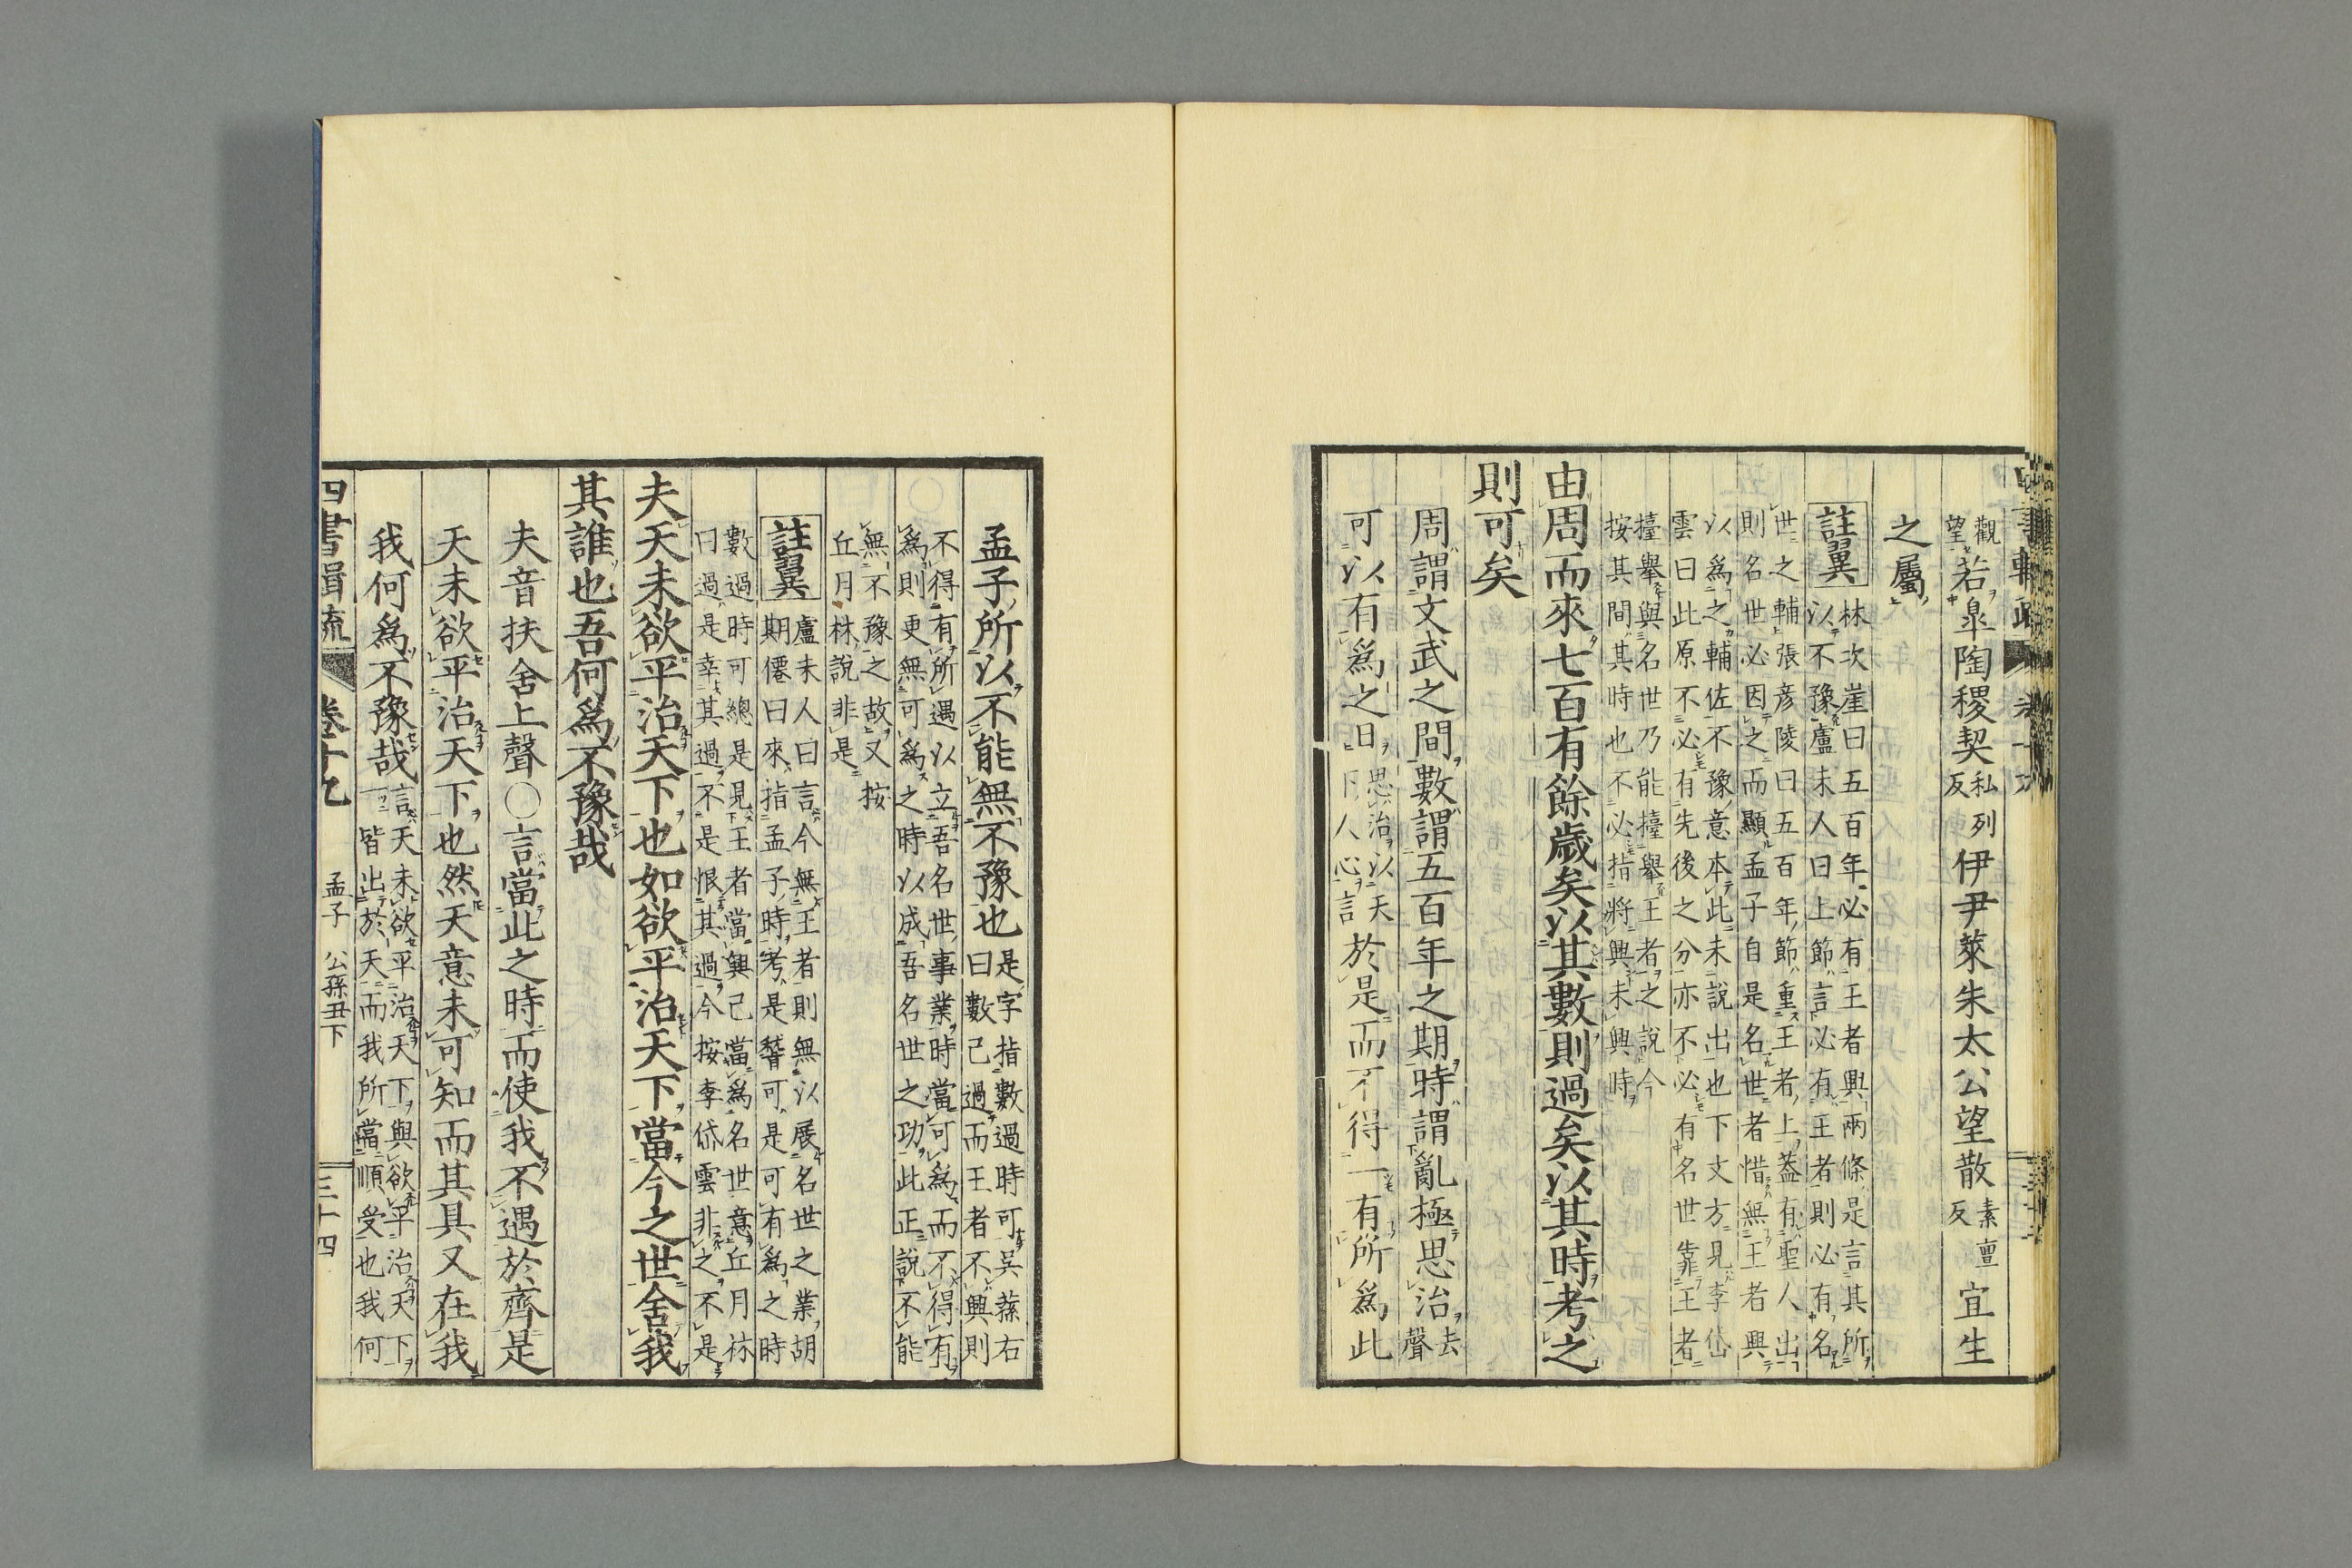 觀望若皐陶稷契私列反伊尹萊朱太公望散素亶反宜生
之屬
註翼
林次崖曰五百年必有王者興兩條是言其所
以不豫盧未人曰上節言必有王者則必有名
世之輔張彦陵曰五百年節重王者上葢有聖人出
則名世必因之而顯孟子自是名世者惜無王者興
以爲之輔佐不豫意本此未說出也下文方見李岱
雲曰此原不必有先後之分亦不必有名世靠王者
擡舉與名世乃能擡舉王者之說今
按其間其時也不必指將興未興時
由周而來七百有餘歲矣以其數則過矣以其時考之
則可矣
周謂文武之間數謂五百年之期時謂亂極思治去聲
可以有爲之日思治以天下人心言於是而不得一有所爲此
孟子所以不能無不豫也
是字指數過時可吳蓀右
曰數已過而王者不興則
不得有所遇以立吾名世事業時當可爲而不得有
爲則更無可爲之時以成吾名世之功此正說不能
無不豫之故又按
丘月林說非是
註翼
盧未人曰言今無王者則無以展名世之業胡
期僊曰來指孟子時考是詧可是可有爲之時
數過時可總是見王者當興己當爲名世意丘月林
曰過是幸其過不是恨其過今按李岱雲非之不是
夫天未欲平治天下也如欲平治天下當今之世舍我
其誰也吾何爲不豫哉
夫音扶舍上聲○言當此之時而使我不遇於齊是
天未欲平治天下也然天意未可知而其具又在我
我何爲不豫哉
言天未欲平治天下與欲平治天下
一皆出於天而我所當順受也我何
四書輯疏 卷十九 孟子 公孫丑下 三十四